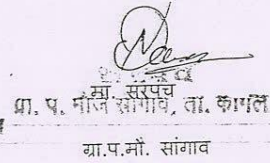 मा. सरपंच
ग्रा. प. मौजे सांगांव, ता. कागल
ग्रा.प.मौ. सांगाव